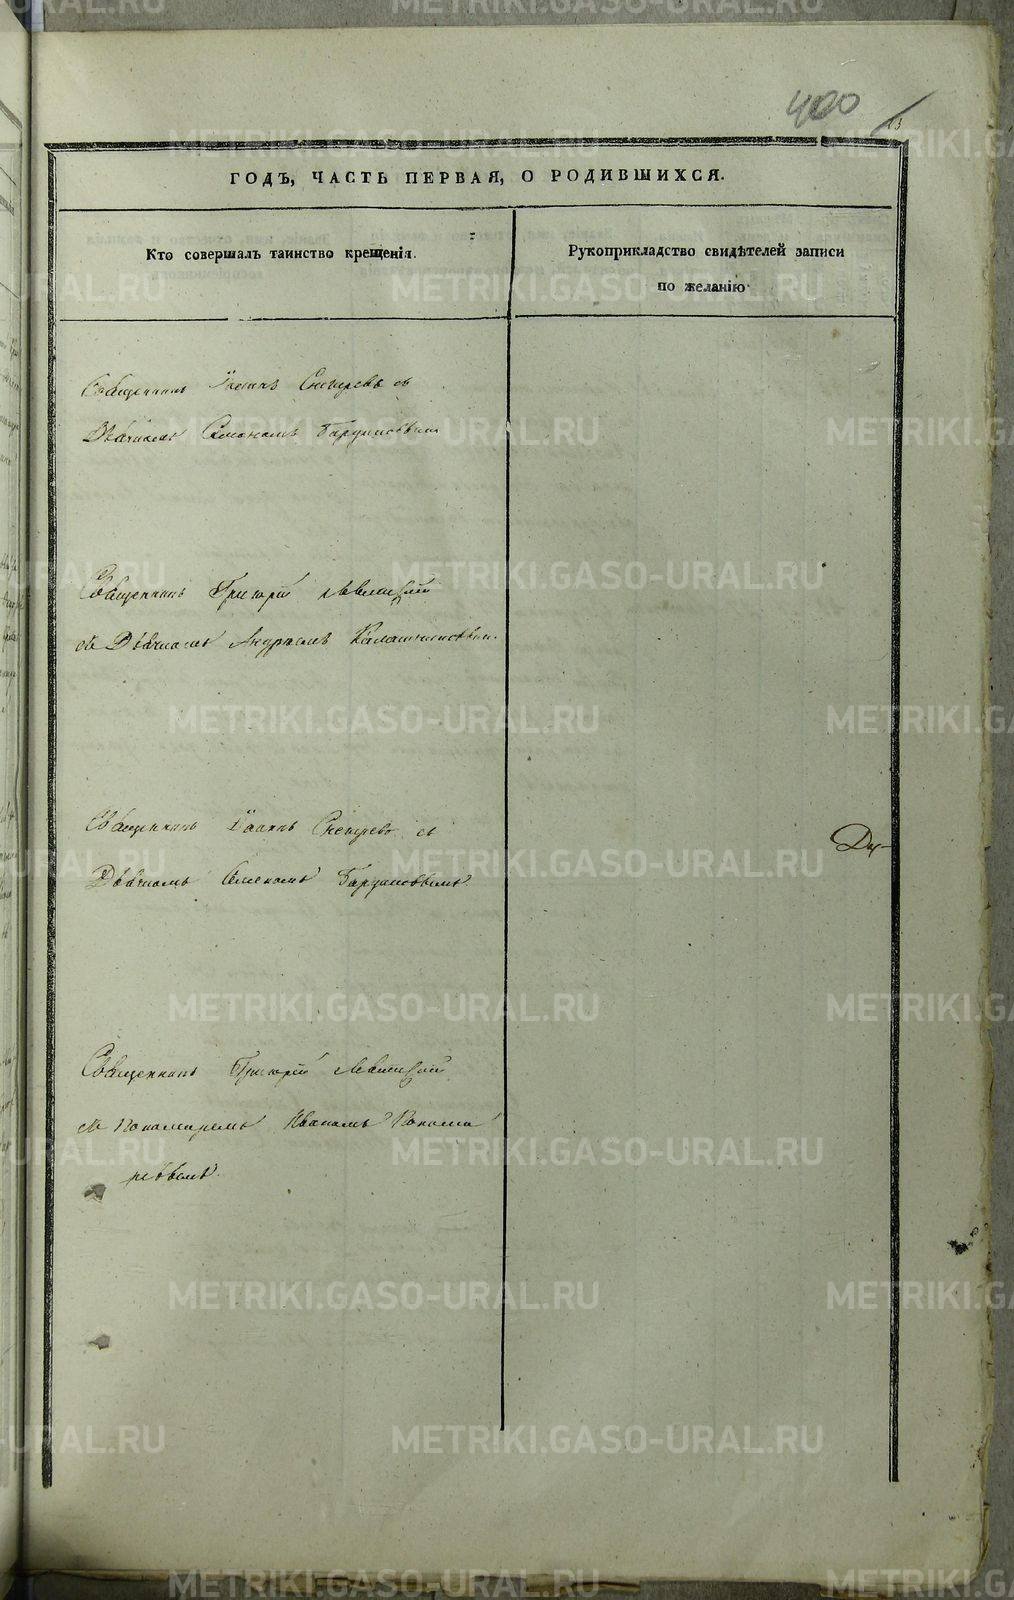 400
13
ГОДЪ, ЧАСТЬ ПЕРВАЯ, О РОДИВШИХСЯ.
Кто совершалъ таинство крещенія.
Рукоприкладство свидѣтелей записи
по желанію
Священникъ Іоаннъ Снегиревъ съ
Дьячкомъ Семеномъ
Священникъ Григорій Левитскій
съ Дьячкомъ Андреемъ Калашниковымъ.
Священникъ Іоаннъ Снегиревъ съ
Дьячкомъ Семеномъ
Ду-
Священникъ Григорій Левитскій
съ Пономаремъ Иваномъ Понома
ревымъ.
METRIKI.GASO-URAL.RU